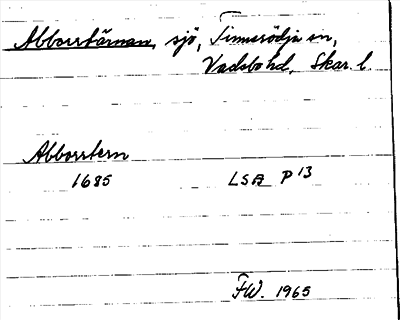 Abborrtärnan, sjö, Finnerödja sn,
Vadsbo hd, Skar. l.
Abborrtern
1685 LSA P 13
FW. 1965